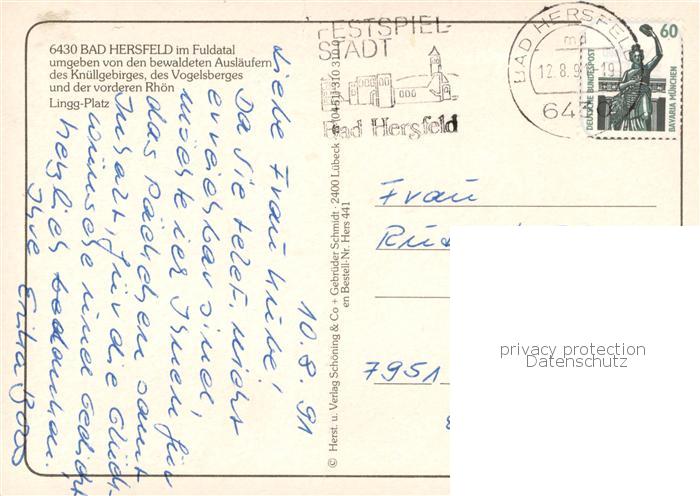 6430 BAD HERSFELD im Fuldatal
umgeben von den bewaldeten Ausläufern
des Knüllgebirges, des Vogelsberges
und der vorderen Rhön
Lingg-Platz
FESTSPIEL-
STADT
Bad Hersfeld
BAD HERSFELD
md
12.8.91-19
6430
60
DEUTSCHE BUNDESPOST
BAVARIA MÜNCHEN
10.8.91
Liebe Frau
Da Sie telef. nicht
erreichbar sind,
möchte ich Ihnen für
das Päckchen samt
Inhalt, für die Glück-
wünsche und Gedicht
herzlich bedanken.
Ihre
© Herst. u. Verlag Schöning & Co + Gebrüder Schmidt · 2400 Lübeck
en Bestell-Nr. Hers 441
Frau
7951
privacy protection
Datenschutz